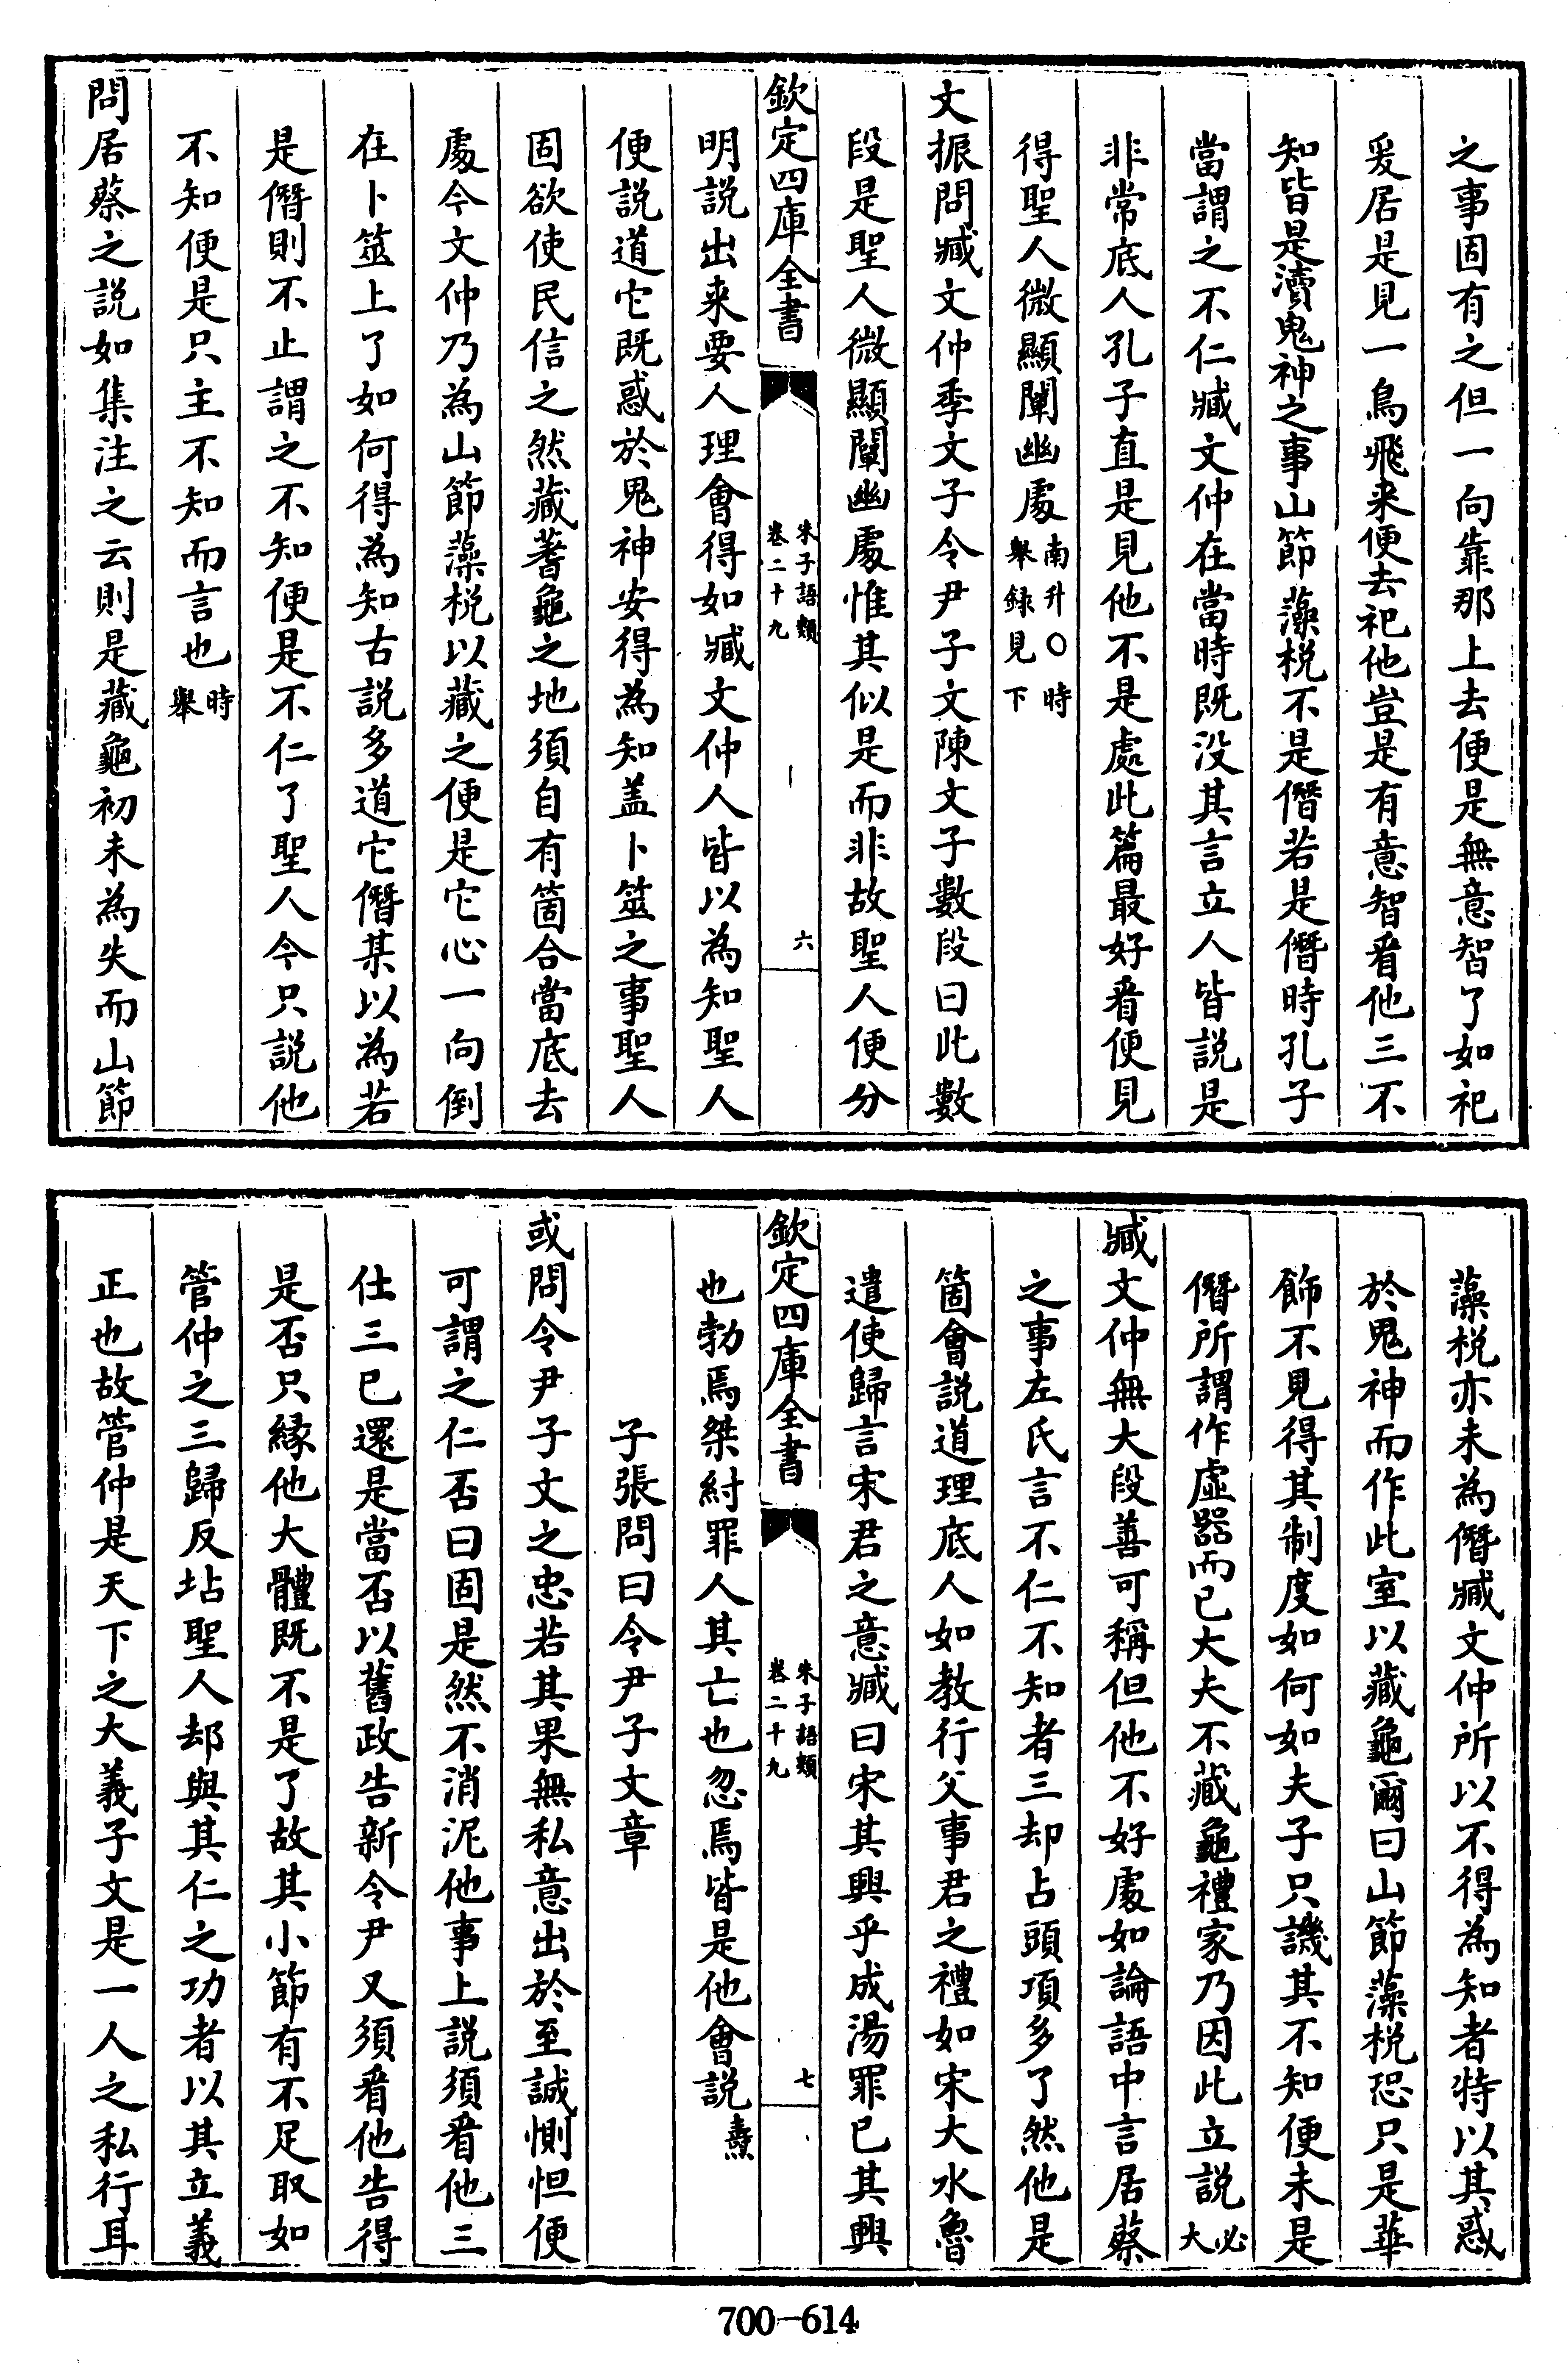 之事固有之但一向靠那上去便是無意智了如祀
爰居是見一鳥飛来便去祀他豈是有意智看他三不
知皆是瀆鬼神之事山節藻梲不是僭若是僭時孔子
當謂之不仁臧文仲在當時既没其言立人皆説是
非常底人孔子直是見他不是處此篇最好看便見
得聖人微顯闡幽處南升○時舉録見下
文振問臧文仲季文子令尹子文陳文子數段曰此數
段是聖人微顯闡幽處惟其似是而非故聖人便分
欽定四庫全書
朱子語類
卷二十九
六
明説出来要人理會得如臧文仲人皆以為知聖人
便説道它既惑於鬼神安得為知盖卜筮之事聖人
固欲使民信之然藏蓍龜之地須自有箇合當底去
處今文仲乃為山節藻梲以藏之便是它心一向倒
在卜筮上了如何得為知古説多道它僭某以為若
是僭則不止謂之不知便是不仁了聖人今只説他
不知便是只主不知而言也時舉
問居蔡之説如集注之云則是藏龜初未為失而山節
藻梲亦未為僭臧文仲所以不得為知者特以其惑
於鬼神而作此室以藏龜爾曰山節藻梲恐只是華
飾不見得其制度如何如夫子只譏其不知便未是
僭所謂作虚器而已大夫不藏龜禮家乃因此立説必大
臧文仲無大段善可稱但他不好處如論語中言居蔡
之事左氏言不仁不知者三却占頭項多了然他是
箇會説道理底人如教行父事君之禮如宋大水魯
遣使歸言宋君之意臧曰宋其興乎成湯罪已其興
欽定四庫全書
朱子語類
卷二十九
七
也勃焉桀紂罪人其亡也忽焉皆是他會説燾
子張問曰令尹子文章
或問令尹子文之忠若其果無私意出於至誠惻怛便
可謂之仁否曰固是然不消泥他事上説須看他三
仕三已還是當否以舊政告新令尹又須看他告得
是否只縁他大體既不是了故其小節有不足取如
管仲之三歸反坫聖人却與其仁之功者以其立義
正也故管仲是天下之大義子文是一人之私行耳
700-614